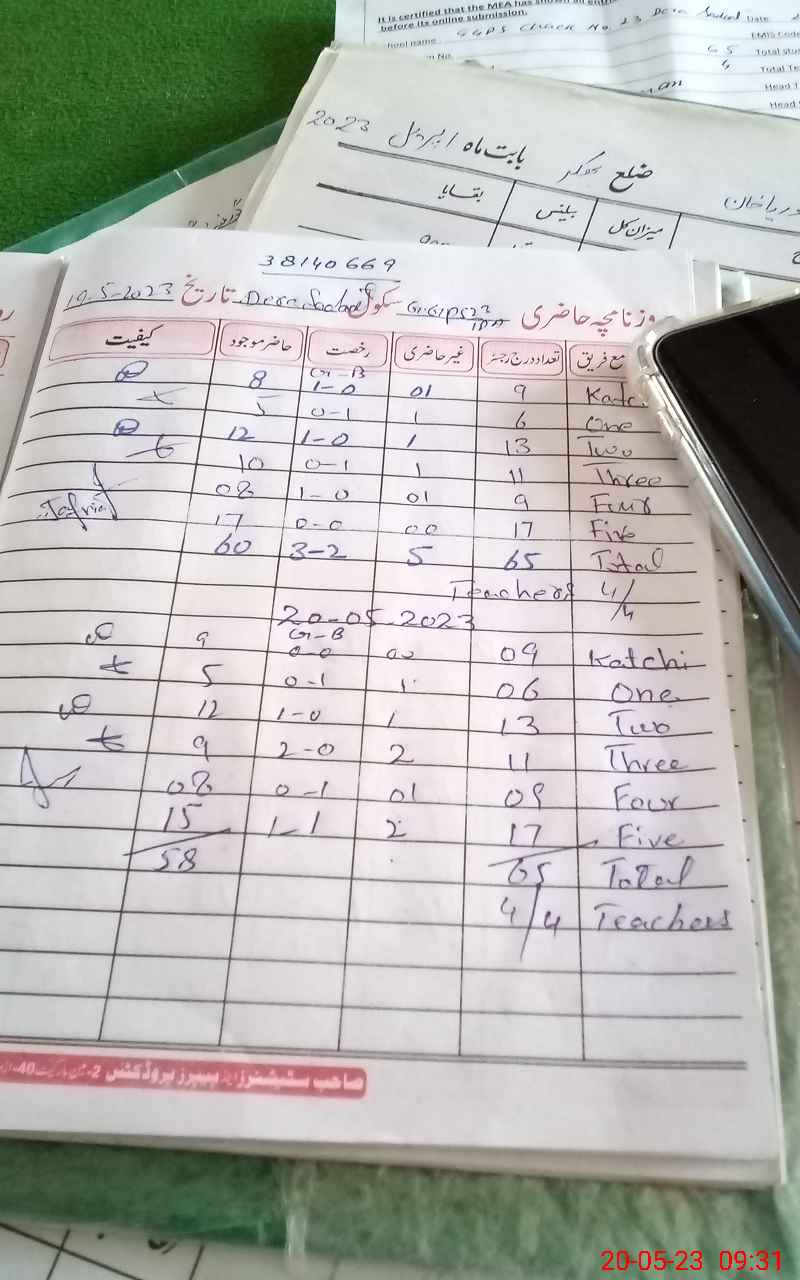 It is certified that the MEA has shown all
before its online submission.
Date
EMIS Code
65 Total stu
4 Total Te
Head T
Head
بابت ماہ اپریل 2023
ضلع بھکر
دریا خان
بقایا
بیلنس
میزان کل
38140669
روزنامچہ حاضری G.GPS 23 سکول Dera تاریخ 19-5-2023
مع فریق تعداد درج رجسٹر غیر حاضری رخصت حاضر موجود کیفیت
G-B
Katc 9 01 1-0 8
One 6 1 0-1 5
Two 13 1 1-0 12
Three 11 1 0-1 10
Four 9 01 1-0 08
Five 17 00 0-0 17
Total 65 5 3-2 60
Teachers 4/4
20-05-2023
G-B
Katchi 09 00 0-0 9
One 06 1 0-1 5
Two 13 1 1-0 12
Three 11 2 2-0 9
Four 09 01 0-1 08
Five 17 2 1-1 15
Total 65 58
Teachers 4/4
صاحب سٹیشنرز اینڈ پیپرز پروڈکٹس 2-
20-05-23 09:31